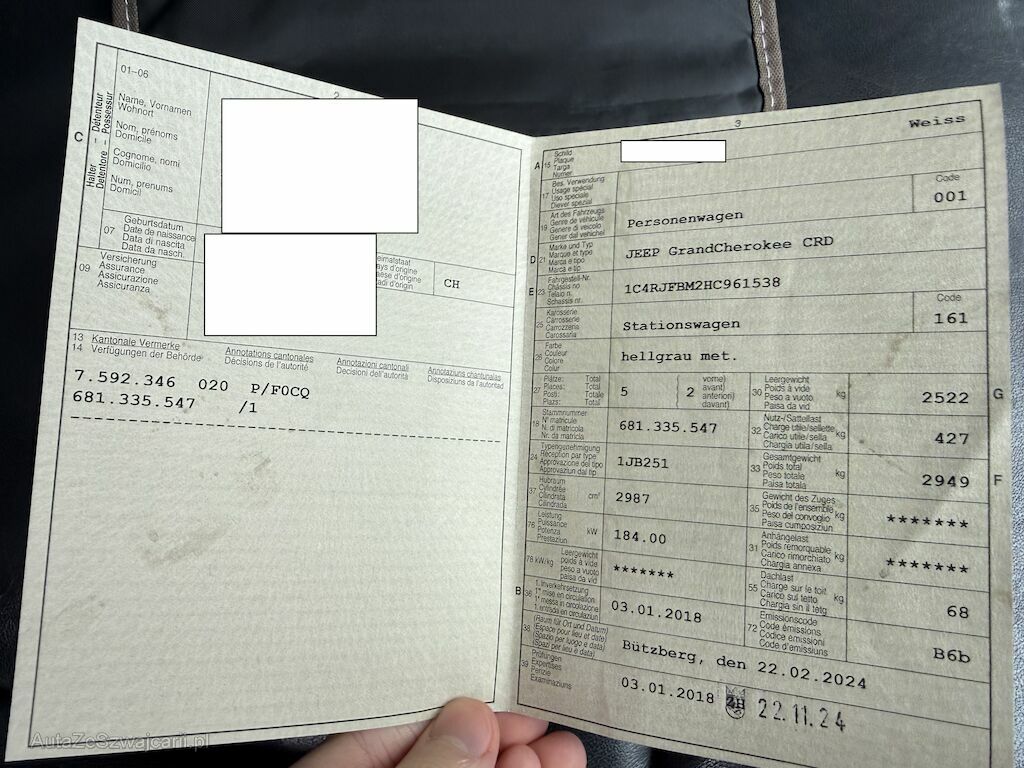 01-06
2
Halter – Détenteur
Detentore – Possessur
C
Name, Vornamen
Wohnort
Nom, prénoms
Domicile
Cognome, nomi
Domicilio
Num, prenums
Domicil
07
Geburtsdatum
Date de naissance
Data di nascita
Data da nasch.
09
Versicherung
Assurance
Assicurazione
Assicuranza
CH
13 Kantonale Vermerke
14 Verfügungen der Behörde
Annotations cantonales
Décisions de l'autorité
Annotazioni cantonali
Decisioni dell'autorità
Annotaziuns chantunalas
Disposiziuns da l'autoritad
7.592.346 020 P/F0CQ
681.335.547 /1
3
Weiss
A 15
Schild
Plaque
Targa
Numer
17
Bes. Verwendung
Usage spécial
Uso speciale
Diever spezial
Code
001
19
Art des Fahrzeugs
Genre de véhicule
Genere di veicolo
Gener dal vehichel
Personenwagen
D 21
Marke und Typ
Marque et type
Marca e tipo
Marca e tip
JEEP GrandCherokee CRD
E 23
Fahrgestell-Nr.
Châssis no
Telaio n.
Schassis nr.
1C4RJFBM2HC961538
25
Karosserie
Carrosserie
Carrozzeria
Carossaria
Stationswagen
Code
161
26
Farbe
Couleur
Colore
Colur
hellgrau met.
27
Plätze: Total
Places: Total
Posti: Totale
Plazs: Total
5
2
vorne)
avant)
anteriori)
davant)
30
Leergewicht
Poids à vide
Peso a vuoto
Paisa da vid
kg
2522
G
18
Stammnummer
N° matricule
N. di matricola
Nr. da matricla
681.335.547
32
Nutz-/Sattellast
Charge utile/sellette
Carico utile/sella
Chargia utila/sella
kg
427
24
Typengenehmigung
Réception par type
Approvazione del tipo
Approvaziun dal tip
1JB251
33
Gesamtgewicht
Poids total
Peso totale
Paisa totala
kg
2949
F
37
Hubraum
Cylindrée
Cilindrata
Cilindrada
cm³
2987
35
Gewicht des Zuges
Poids de l'ensemble
Peso del convoglio
Paisa cumposiziun
kg
*******
76
Leistung
Puissance
Potenza
Prestaziun
kW
184.00
31
Anhängelast
Poids remorquable
Carico rimorchiato
Chargia annexa
kg
*******
78 kW/kg
Leergewicht
poids à vide
peso a vuoto
paisa da vid
*******
55
Dachlast
Charge sur le toit
Carico sul tetto
Chargia sin il tetg
kg
68
B 36
1. Inverkehrsetzung
1re mise en circulation
1a messa in circolazione
1. entrada en circulaziun
03.01.2018
72
Emissionscode
Code émissions
Codice emissioni
Code d'emissiuns
B6b
38
(Raum für Ort und Datum)
(Espace pour lieu et date)
(Spazio per luogo e data)
(Spazi per lieu e data)
Bützberg, den 22.02.2024
39
Prüfungen
Expertises
Perizie
Examinaziuns
03.01.2018 ZH 22.11.24
AutaZeSzwajcarii.pl